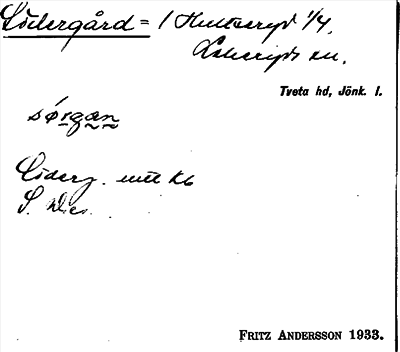 Södergård = 1 Hultseryd 1/4,
sn.
Tveta hd, Jönk. l.
sörgan
Söderg. mtl Kb
S.
FRITZ ANDERSSON 1933.